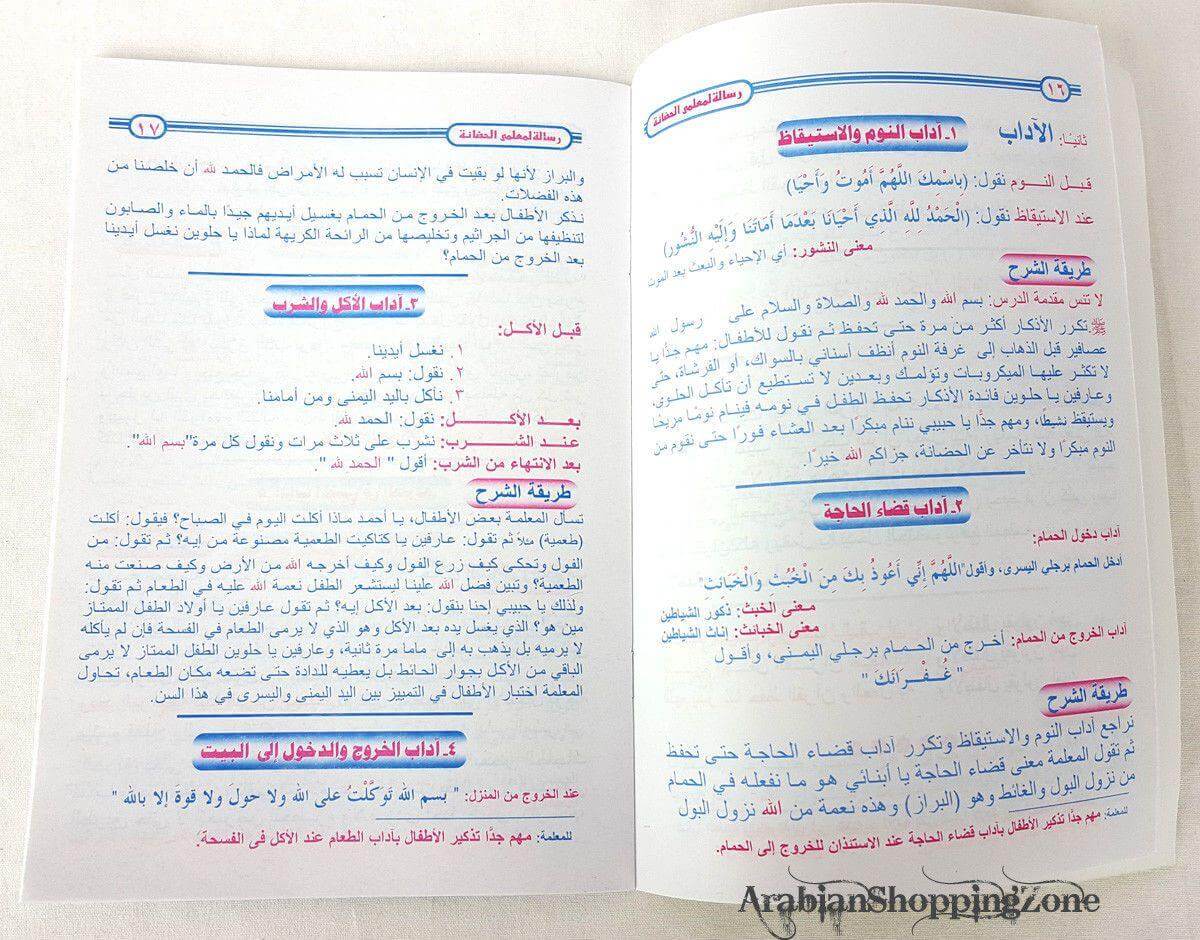 ١٦
رسالة لمعلمى الحضانة
ثانيًا: الآداب
١ـ آداب النوم والاستيقاظ
قبل النوم نقول: (بِاسْمِكَ اللَّهُمَّ أَمُوتُ وَأَحْيَا)
عند الاستيقاظ نقول: (الْحَمْدُ لِلَّهِ الَّذِي أَحْيَانَا بَعْدَمَا أَمَاتَنَا وَإِلَيْهِ النُّشُور)
معنى النشور: أي الإحياء والبعث بعد الموت
طريقة الشرح
لا تنس مقدمة الدرس: بسم الله والحمد لله والصلاة والسلام على رسول الله
ﷺ تكرر الأذكار أكثر من مرة حتى تحفظ ثم نقول للأطفال: مهم جدًّا يا
عصافير قبل الذهاب إلى غرفة النوم أنظف أسناني بالسواك، أو الفرشاة، حتى
لا تكثر عليها الميكروبات وتؤلمك وبعدين لا تستطيع أن تأكل الحلوى،
وعارفين يا حلوين فائدة الأذكار تحفظ الطفل في نومه فينام نومًا مريحًا
ويستيقظ نشيطًا، ومهم جدًّا يا حبيبي ننام مبكرًا بعد العشاء فورًا حتى نقوم من
النوم مبكرًا ولا نتأخر عن الحضانة، جزاكم الله خيرًا.
٢ـ آداب قضاء الحاجة
آداب دخول الحمام:
أدخل الحمام برجلي اليسرى، وأقول"اللَّهُمَّ إِنِّي أَعُوذُ بِكَ مِنَ الْخُبُثِ وَالْخَبَائِثِ"
معنى الخبث: ذكور الشياطين
معنى الخبائث: إناث الشياطين
آداب الخروج من الحمام: أخرج من الحمام برجلي اليمنى، وأقول
" غُـفْـرَانَكَ "
طريقة الشرح
نراجع آداب النوم والاستيقاظ وتكرر آداب قضاء الحاجة حتى تحفظ
ثم تقول المعلمة معنى قضاء الحاجة يا أبنائي هو ما نفعله في الحمام
من نزول البول والغائط وهو (البراز) وهذه نعمة من الله نزول البول
للمعلمة: مهم جدًّا تذكير الأطفال بآداب قضاء الحاجة عند الاستئذان للخروج إلى الحمام.
١٧
رسالة لمعلمى الحضانة
والبراز لأنها لو بقيت في الإنسان تسبب له الأمراض فالحمد لله أن خلصنا من
هذه الفضلات.
نذكر الأطفال بعد الخروج من الحمام بغسيل أيديهم جيدًا بالماء والصابون
لتنظيفها من الجراثيم وتخليصها من الرائحة الكريهة لماذا يا حلوين نغسل أيدينا
بعد الخروج من الحمام؟
٣ـ آداب الأكل والشرب
قبل الأكل:
١. نغسل أيدينا.
٢. نقول: بسم الله.
٣. نأكل باليد اليمنى ومن أمامنا.
بعـد الأكـــــــل: نقول: الحمد لله.
عنـد الشـــرب: نشرب على ثلاث مرات ونقول كل مرة"بسم الله".
بعد الانتهاء من الشرب: أقول " الحمد لله ".
طريقة الشرح
تسأل المعلمة بعض الأطفال، يا أحمد ماذا أكلت اليوم في الصباح؟ فيقول: أكلت
(طعمية) مثلاً ثم تقول: عارفين يا كتاكيت الطعمية مصنوعة من إيه؟ ثم تقول: من
الفول وتحكى كيف زرع الفول وكيف أخرجه الله من الأرض وكيف صنعت منه
الطعمية؟ وتبين فضل الله علينا ليستشعر الطفل نعمة الله عليه في الطعام ثم تقول:
ولذلك يا حبيبي إحنا بنقول: بعد الأكل إيه؟ ثم تقول عارفين يا أولاد الطفل الممتاز
مين هو؟ الذي يغسل يده بعد الأكل وهو الذي لا يرمى الطعام في الفسحة فإن لم يأكله
لا يرميه بل يذهب به إلى ماما مرة ثانية، وعارفين يا حلوين الطفل الممتاز لا يرمى
الباقي من الأكل بجوار الحائط بل يعطيه للدادة حتى تضعه مكان الطعام، تحاول
المعلمة اختبار الأطفال في التمييز بين اليد اليمنى واليسرى في هذا السن.
٤ـ آداب الخروج والدخول إلى البيت
عند الخروج من المنزل: " بسم الله تَوَكَّلْتُ على الله ولا حولَ ولا قوةَ إلا بالله "
للمعلمة: مهم جدًّا تذكير الأطفال بآداب الطعام عند الأكل فى الفسحة.
ArabianShoppingZone